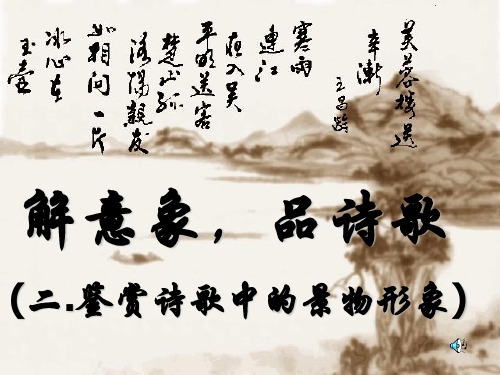 芙蓉樓送
辛漸
王昌齡
寒雨
連江
夜入吴
平明送客
楚山孤
洛陽親友
如相问一片
冰心在
玉壺
解意象，品诗歌
(二.鉴赏诗歌中的景物形象)